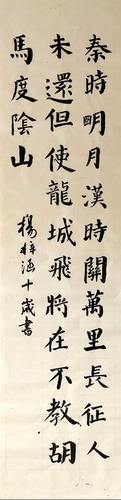 秦時明月漢時關萬里長征人
未還但使龍城飛將在不教胡
馬度陰山
楊梓涵十歲書